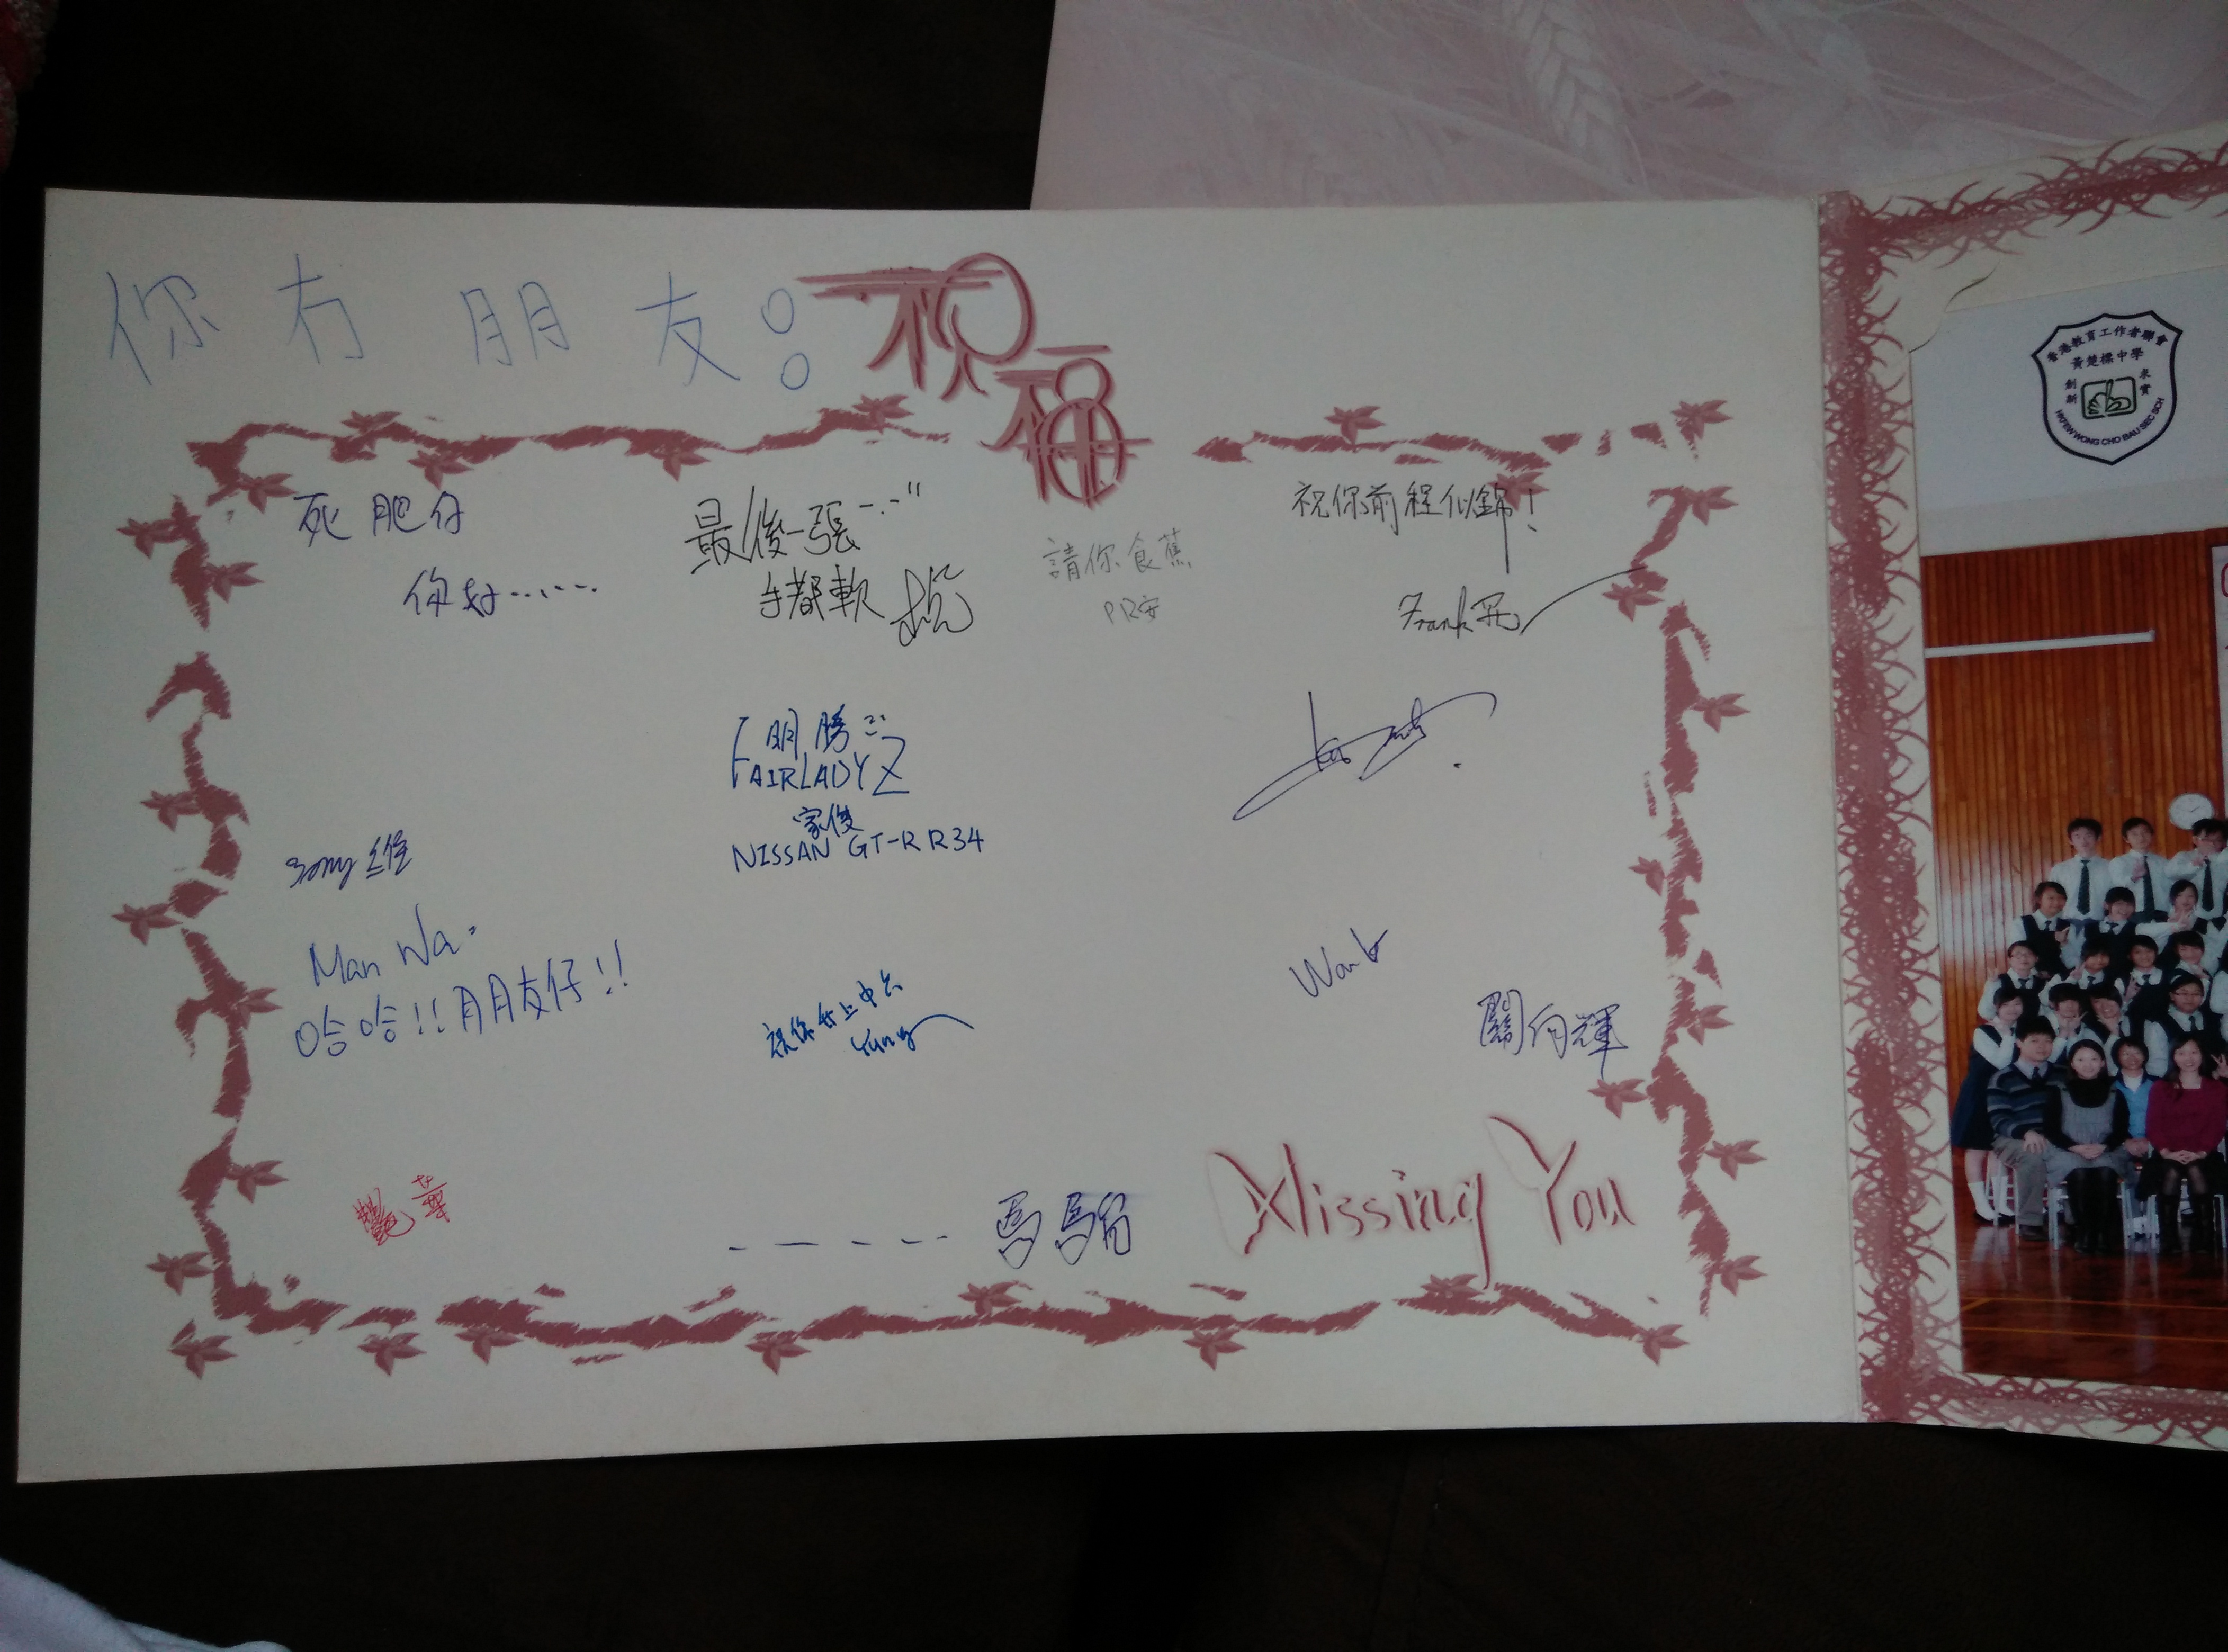 你冇朋友
祝福
死肥仔
你好
最後一張
手都軟
請你食蕉
祝你前程似錦!
Frank
明騰
FAIRLADY Z
家俊
NISSAN GT-R R34
Sony 維
Man Wa
哈哈!! 朋友仔!!
祝你升上中六
Yung
關向輝
艷華
Missing You
香港教育工作者聯會
黃楚標中學
創新
求實
HKFEW WONG CHO BAU SEC SCH